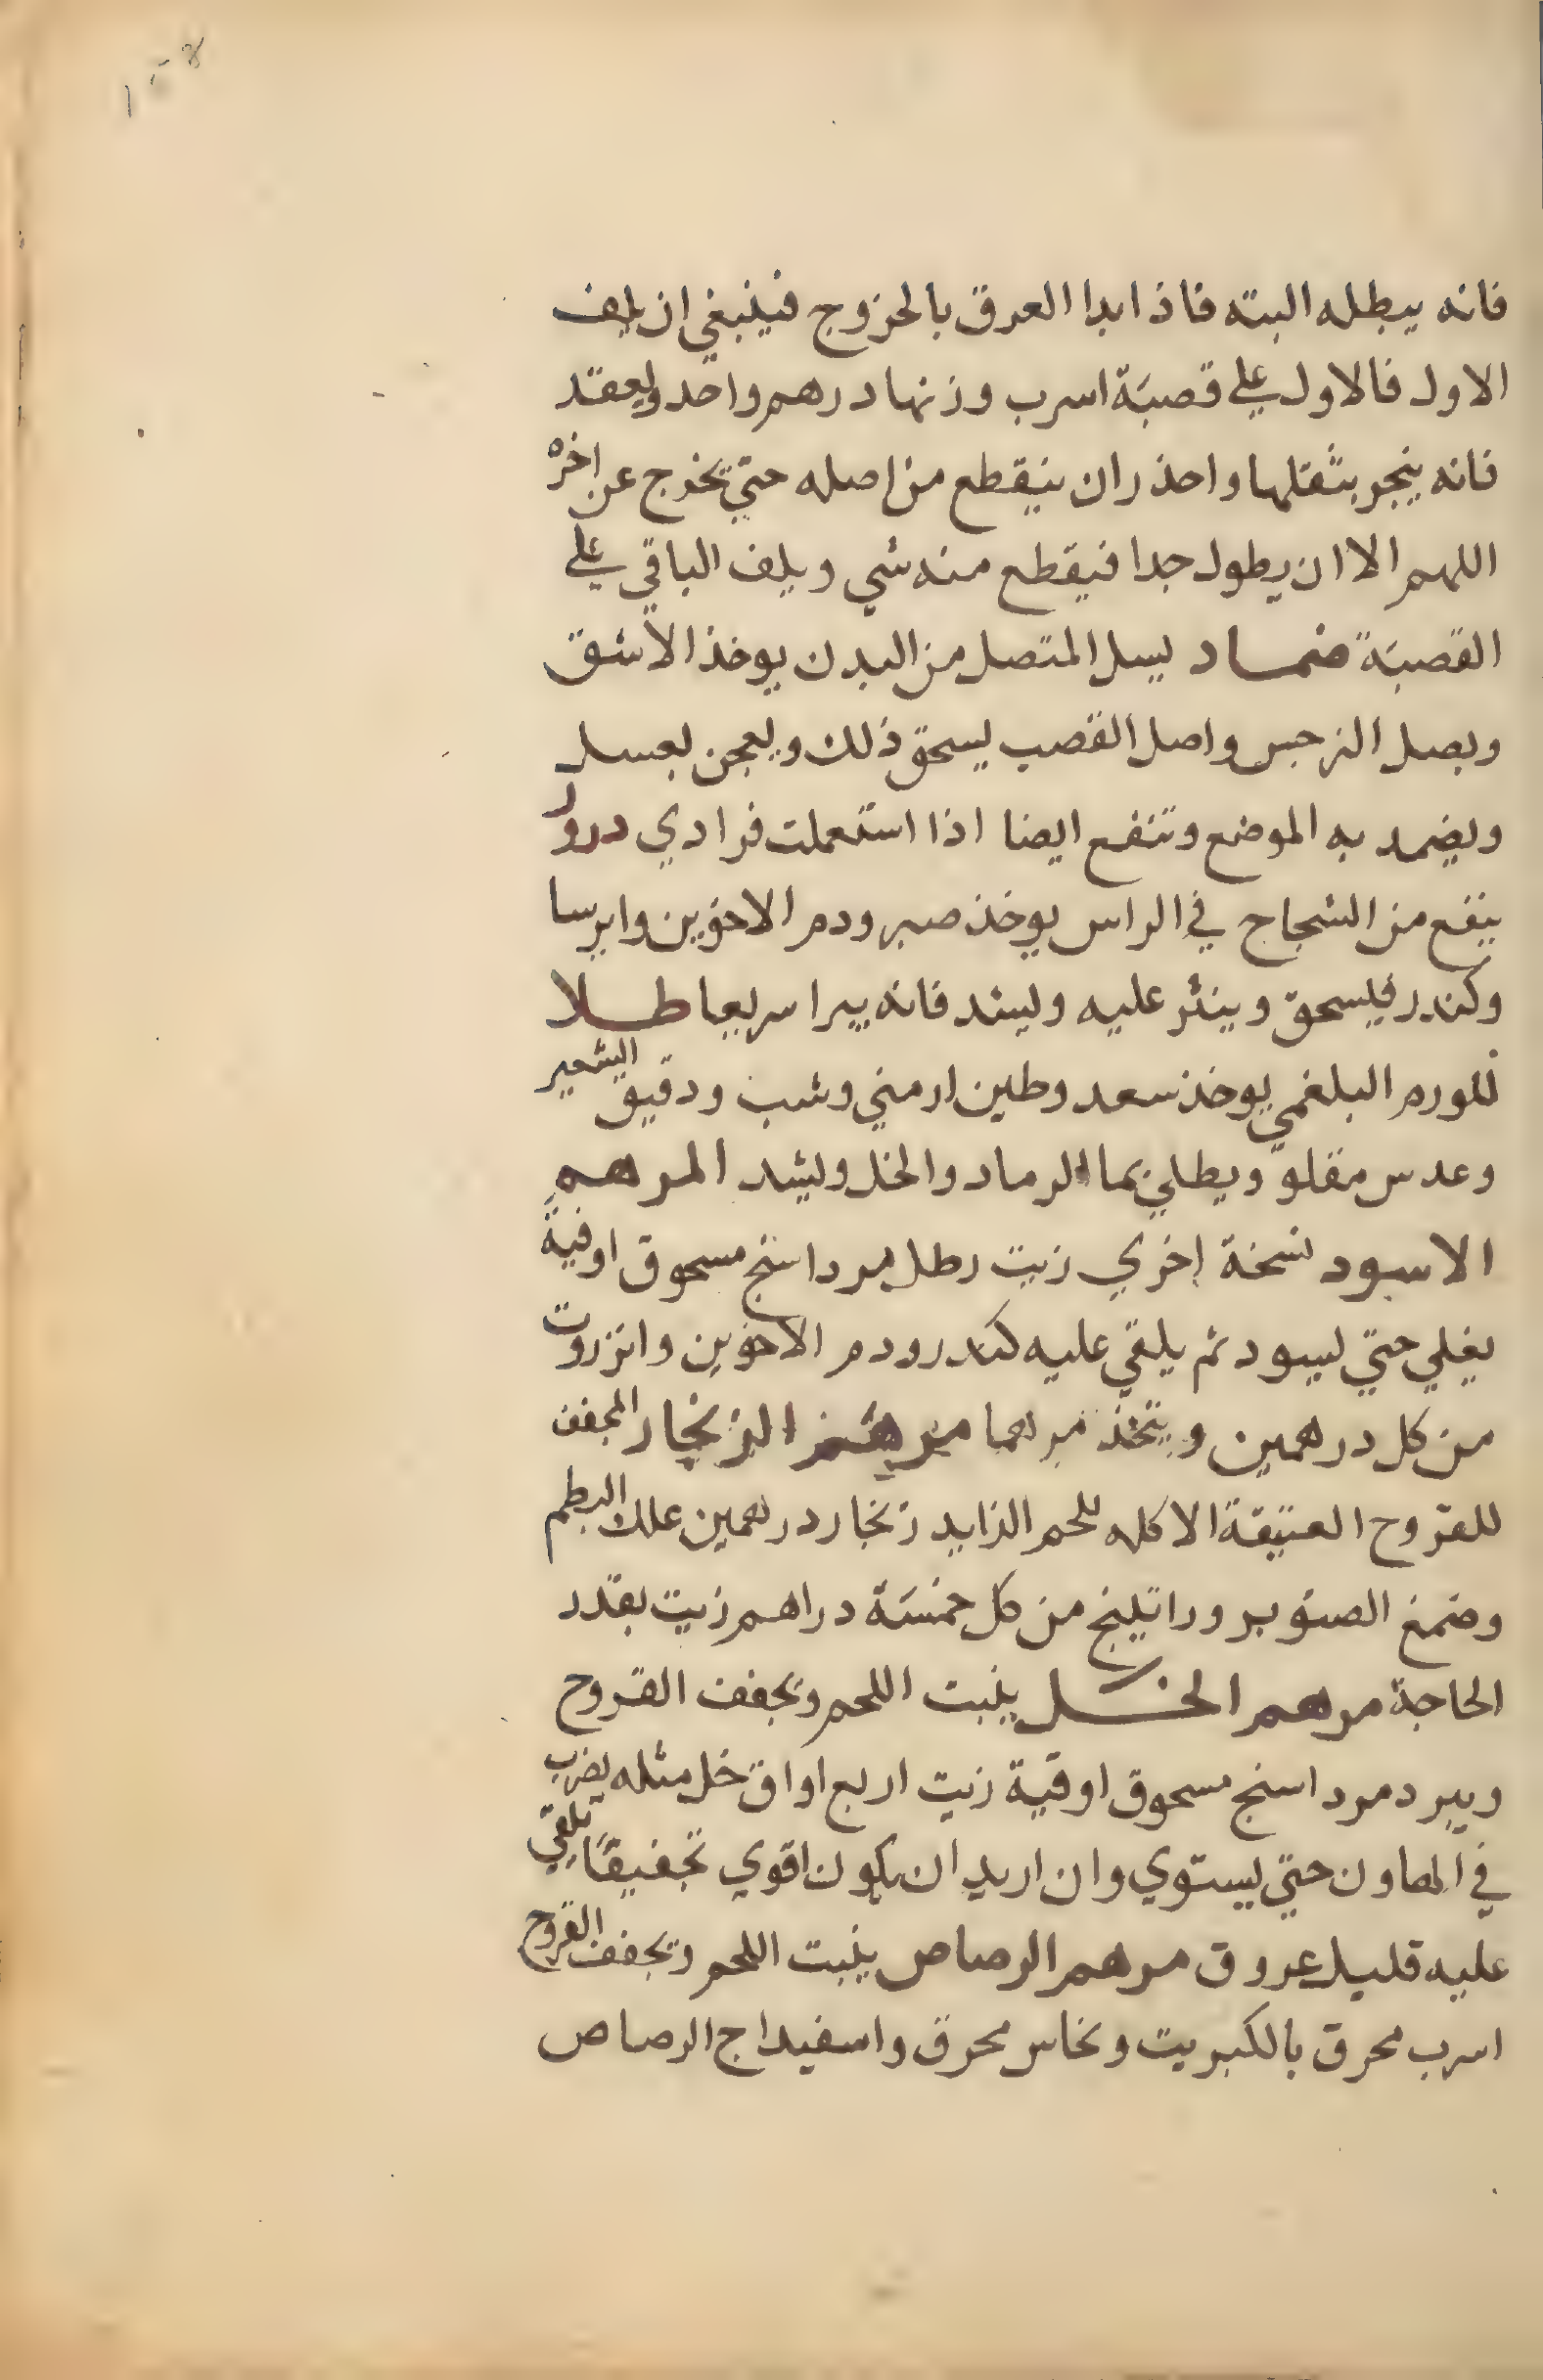 فانه يبطله البته فاذا بدا العرق بالخروج فينبغي ان يلف
الاول فالاول علي قصبة اسرب وزنها درهم واحد ويعقد
فانه ينجر بثقلها واحذر ان ينقطع من اصله حتي يخرج عن اخره
اللهم الا ان يطول جدا فيقطع منه شي ويلف الباقي علي
القصبة ضماد يسل المتصل من البدن يوخذ الاشق
وبصل النرجس واصل القصب يسحق ذلك ويعجن بعسل
ويضمد به الموضع وتنفع ايضا اذا استعملت فرادي درور
ينفع من الشجاج في الراس يوخذ صبر ودم الاخوين وايرسا
وكندر فيسحق وينثر عليه ويشد فانه يبرا سريعا طلا
للورم البلغمي يوخذ سعد وطين ارمني وشب ودقيق الشعير
وعدس مقلو ويطلي بما الرماد والخل ويشد المرهم
الاسود نسخة اخري زيت رطل مرداسنج مسحوق اوقية
يغلي حتي يسود ثم يلقي عليه كندر ودم الاخوين وانزروت
من كل درهمين ويتخذ مرهما مرهم الزنجار المجفف
للقروح العتيقة الاكله للحم الزايد زنجار درهمين علك البطم
وصمغ الصنوبر وراتينج من كل خمسة دراهم زيت بقدر
الحاجة مرهم الخل ينبت اللحم ويجفف القروح
ويبرد مرداسنج مسحوق اوقية زيت اربع اواق خل مثله يضرب
في الهاون حتي يستوي وان اريد ان يكون اقوي تجفيفا يلقي
عليه قليل عروق مرهم الرصاص ينبت اللحم ويجفف القروح
اسرب محرق بالكبريت ونحاس محرق واسفيداج الرصاص